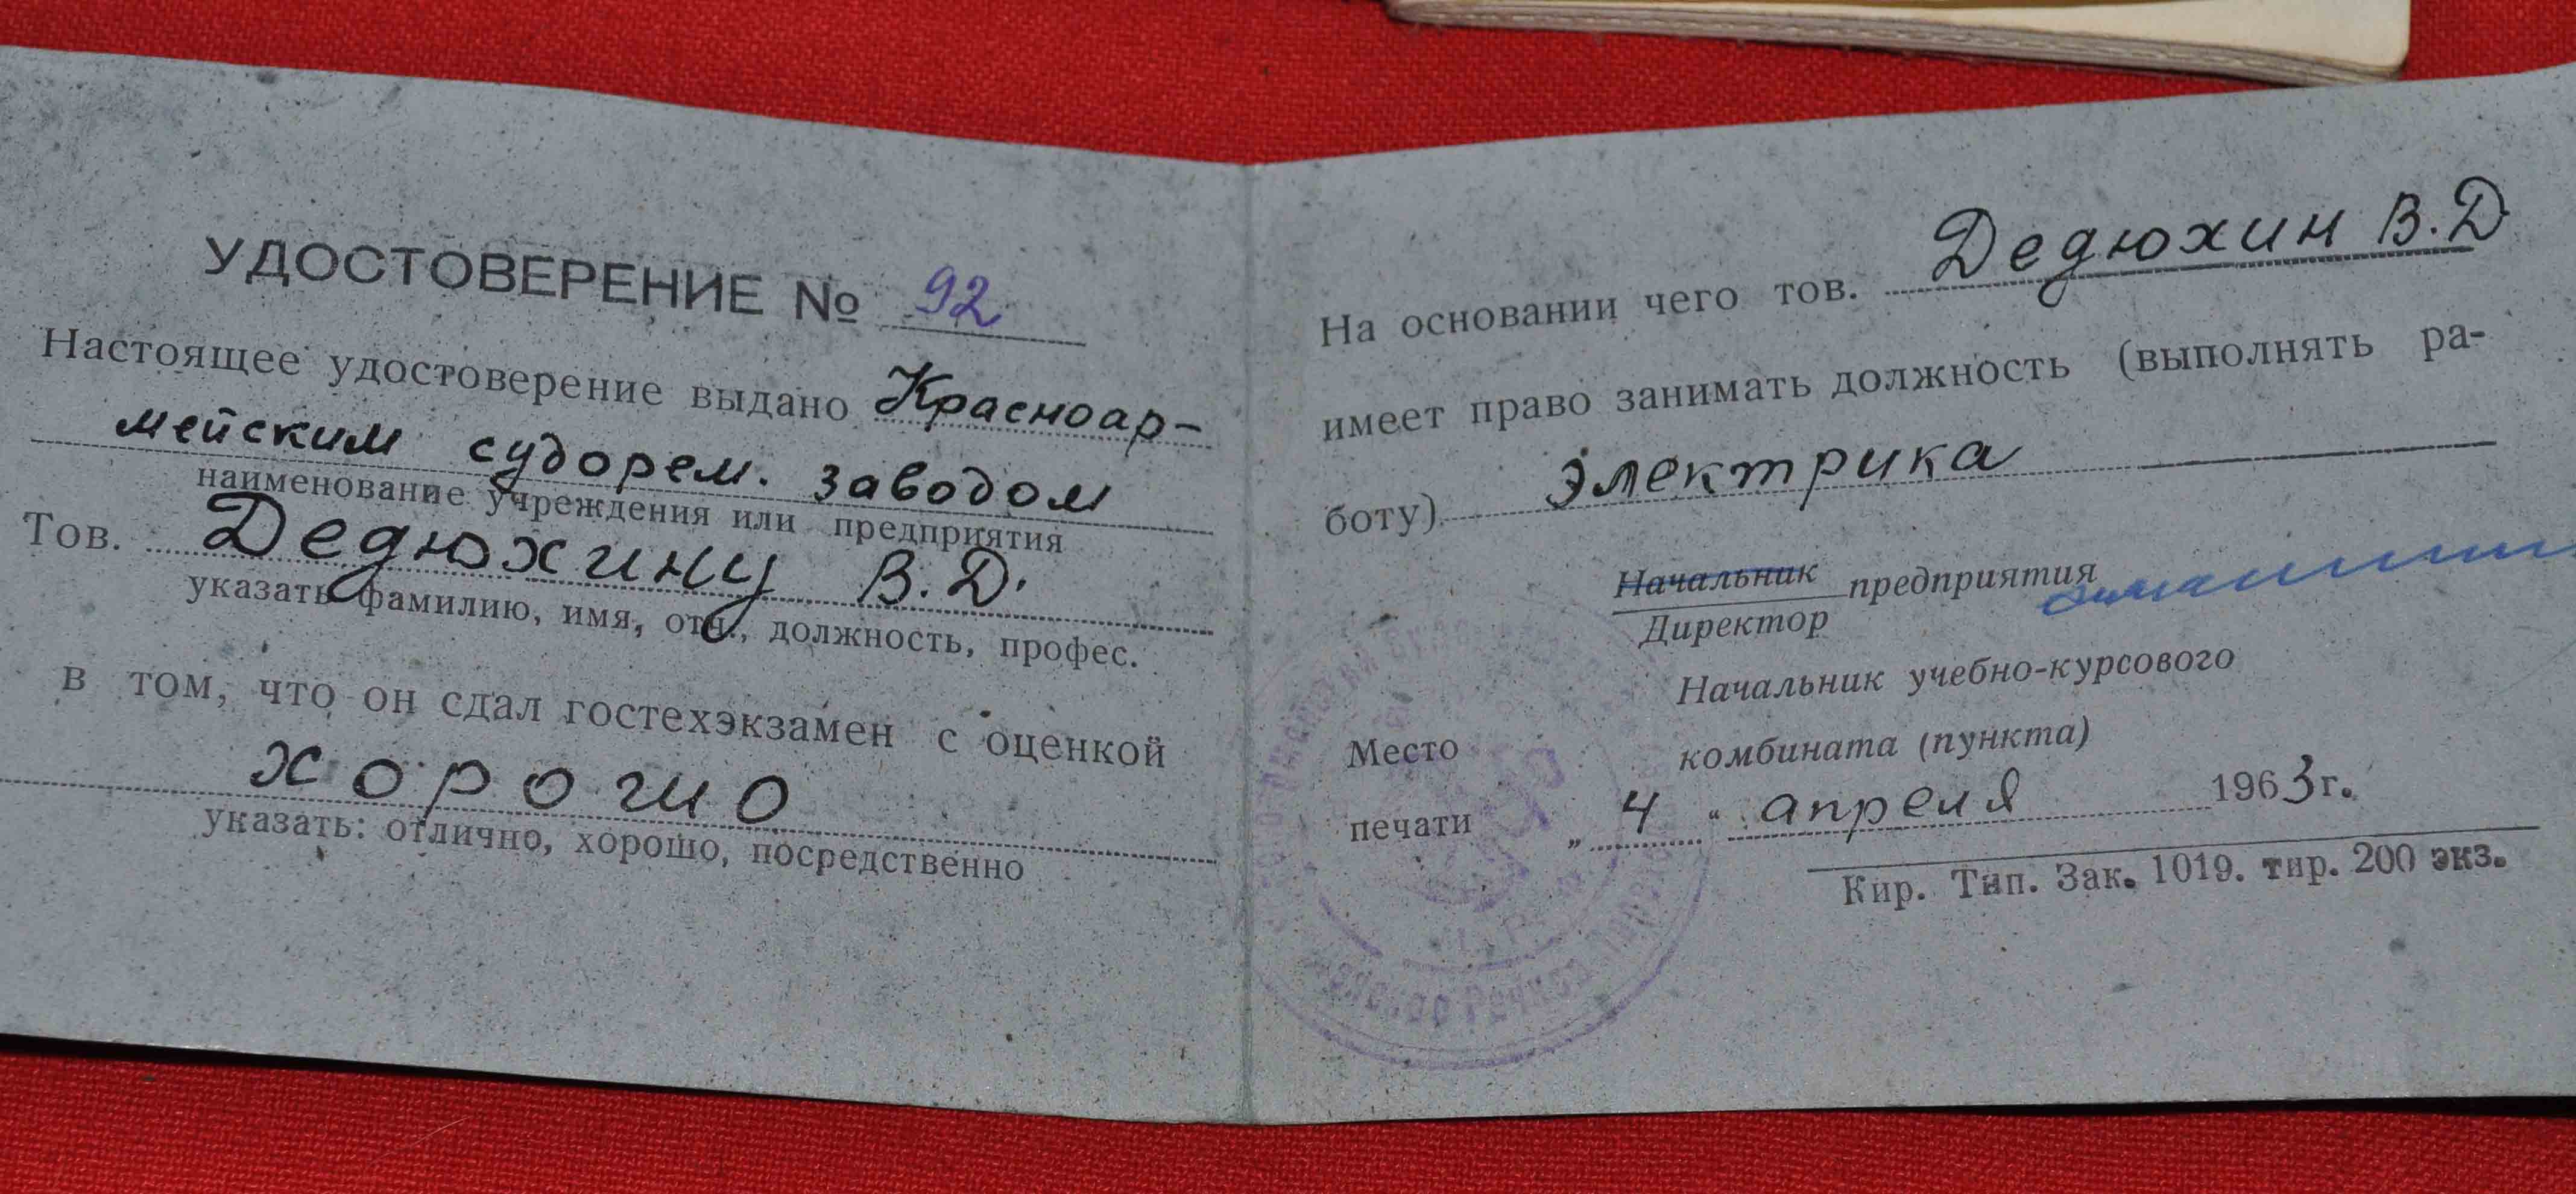 УДОСТОВЕРЕНИЕ № 92
Настоящее удостоверение выдано Красноар-
мейским судорем. заводом
наименование учреждения или предприятия
Тов. Дедюхину В.Д.
указать фамилию, имя, отч., должность, профес.
в том, что он сдал гостехэкзамен с оценкой
хорошо
указать: отлично, хорошо, посредственно
На основании чего тов. Дедюхин В.Д
имеет право занимать должность (выполнять ра-
боту) электрика
Начальник предприятия
Директор
Начальник учебно-курсового
комбината (пункта)
Место
печати „ 4 “ апреля 1963г.
Кир. Тип. Зак. 1019. тир. 200 экз.